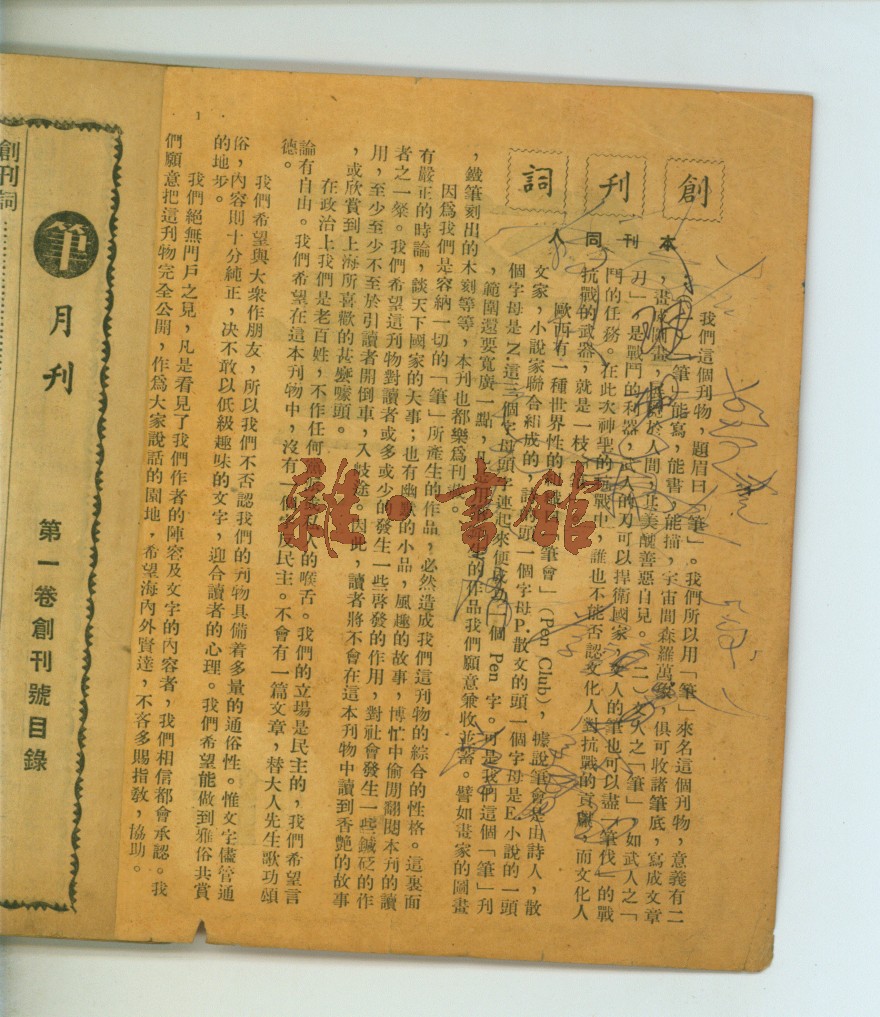 創刊詞
本刊同人
我們這個刊物，題眉曰「筆」。我們所以用「筆」來名這個刊物，意義有二
能寫，能書，能描，宇宙間森羅萬象，俱可收諸筆底，寫成文章
，畫成圖畫，於人間，其美醜善惡自見。（二）文人之「筆」，如武人之「
刀」，是戰鬥的利器，武人的刀可以捍衛國家，文人的筆也可以盡「筆伐」的戰
鬥的任務。在此次神聖的抗戰中，誰也不能否認文化人對抗戰的貢獻，而文化人
抗戰的武器，就是一枝筆
歐西有一種世界性的「筆會」（Pen Club），據說筆會是由詩人，散
文家，小說家聯合組成的，詩的頭一個字母P.散文的頭一個字母是E.小說的一頭
個字母是N.這三個字母頭字連起來便成功一個 Pen 字。可是我們這個「筆」刊
，範圍還要寬廣一點，凡是用的作品我們願意兼收並蓄。譬如畫家的圖畫
，鐵筆刻出的木刻等等，本刊也都樂爲刊出。
因爲我們是容納一切的「筆」所產生的作品，必然造成我們這刊物的綜合的性格。這裏面
有嚴正的時論，談天下國家的大事；也有幽默的小品，風趣的故事，博忙中偷閒翻閱本刊的讀
者之一粲。我們希望這刊物對讀者或多或少的發生一些啓發的作用，對社會發生一些鍼砭的作
用，至少至少不至於引讀者開倒車，入歧途。因此，讀者將不會在這本刊物中讀到香艷的故事
，或欣賞到上海所喜歡的甚麼噱頭。
在政治上我們是老百姓，不作任何人的喉舌。我們的立場是民主的，我們希望言
論有自由。我們希望在這本刊物中，沒有一個字反民主。不會有一篇文章，替大人先生歌功頌
德。
我們希望與大衆作朋友，所以我們不否認我們的刊物具備着多量的通俗性。惟文字儘管通
俗，內容則十分純正，决不敢以低級趣味的文字，迎合讀者的心理。我們希望能做到雅俗共賞
的地步。
我們絕無門戶之見，凡是看見了我們作者的陣容及文字的內容者，我們相信都會承認。我
們願意把這刊物完全公開，作爲大家說話的園地，希望海內外賢達，不吝多賜指敎，協助。
1
筆
月刊
第一卷創刊號目錄
創刊詞
雜·書館